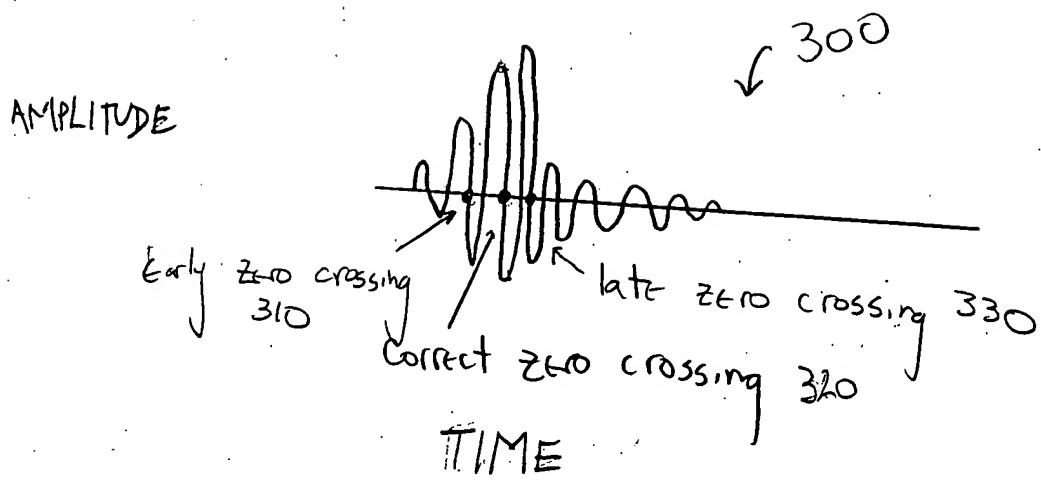 300
AMPLITUDE
Early zero crossing
310
late zero crossing 330
Correct zero crossing 320
TIME